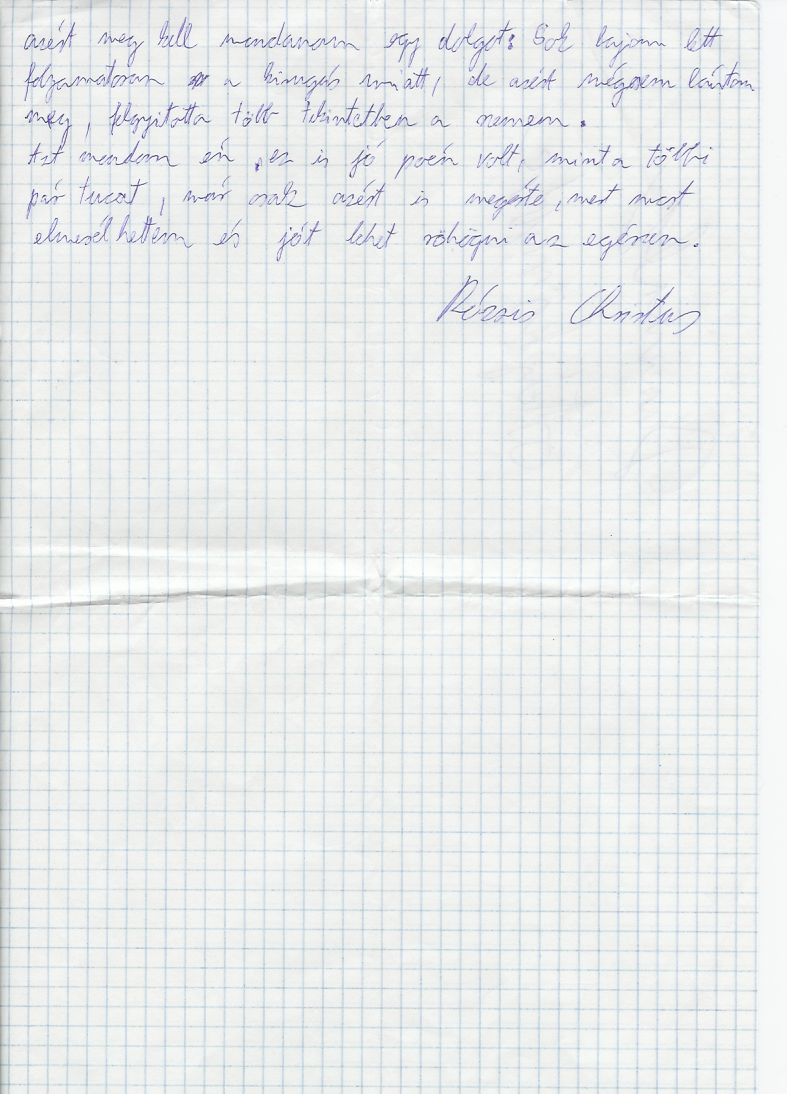 azért meg kell mondanom egy dolgot: Sok bajom lett
folyamatosan a kirugás miatt, de azért mégsem bántam
meg, felnyitotta több tekintetben a szemem.
Azt mondom én, ez is jó poén volt, mint a többi
pár tucat, már csak azért is megérte, mert most
elmesélhettem és jót lehet röhögni az egészen.